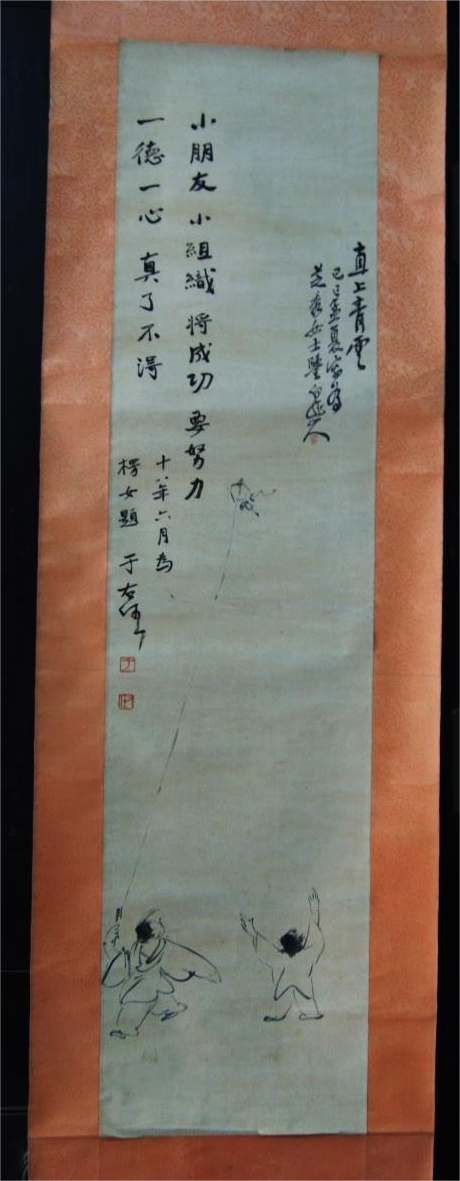 直上青雲
己巳孟夏寫為
芝秀女士鑒 白龍山人
小朋友 小組織 將成功 要努力
一德一心 真了不得
十八年六月為
楞女題 于右任